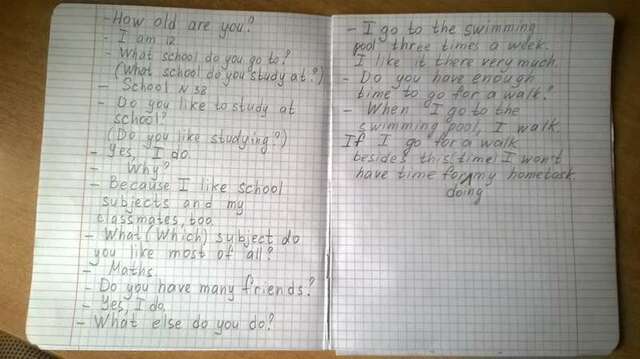 - How old are you?
- I am 12
- What school do you go to?
(What school do you study at?)
- School N 38
- Do you like to study at
school?
(Do you like studying?)
- Yes, I do.
- Why?
- Because I like school
subjects and my
classmates, too.
- What (Which) subject do
you like most of all?
- Maths
- Do you have many friends?
- Yes, I do.
- What else do you do?
- I go to the swimming
pool three times a week.
I like it there very much.
- Do you have enough
time to go for a walk?
- When I go to the
swimming pool, I walk.
If I go for a walk
besides this time I won't
have time for my hometask.
doing